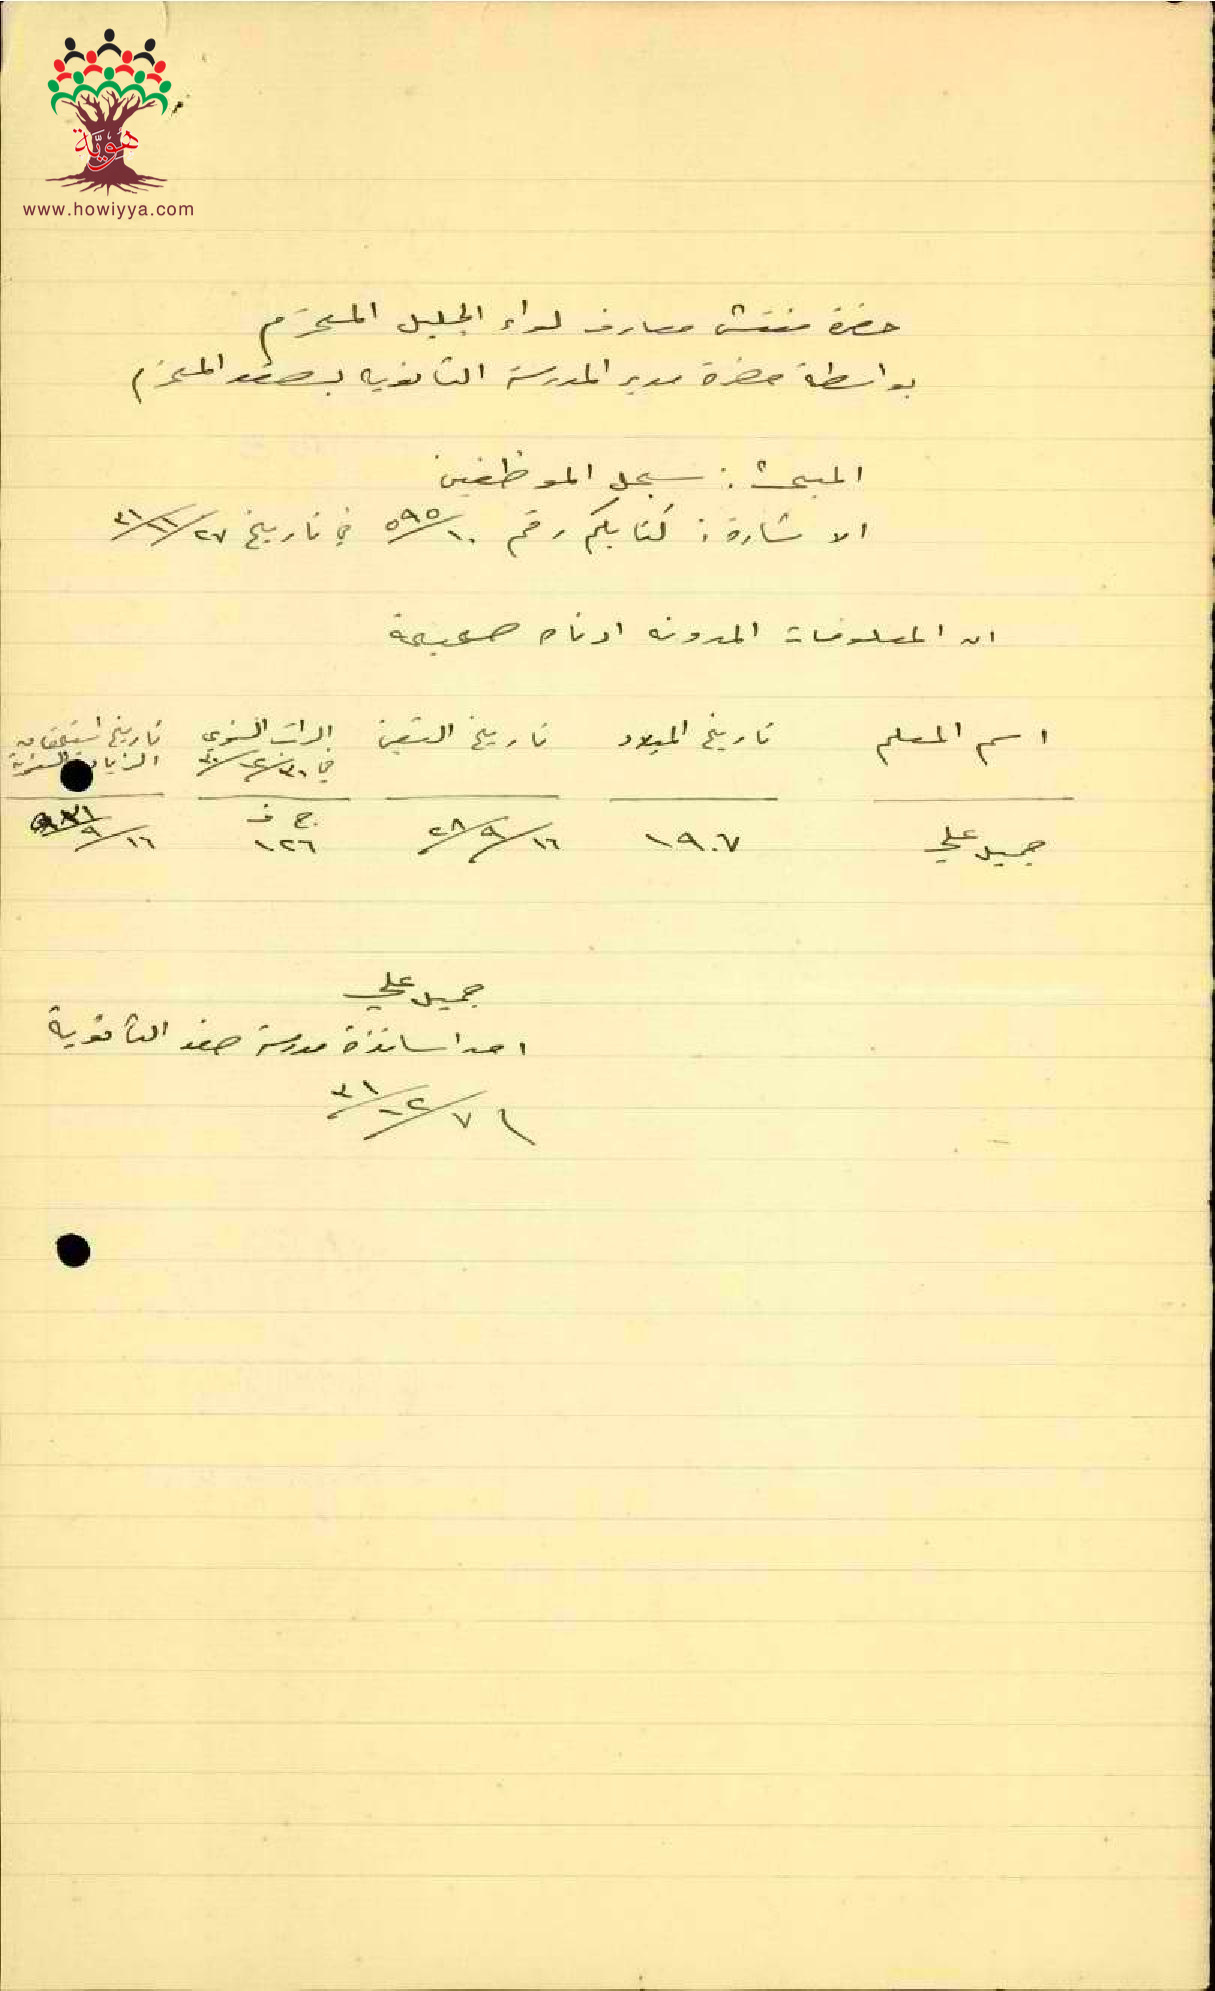 هُوِيَّة
www.howiyya.com
حضرة مفتش معارف لواء الجليل المحترم
بواسطة حضرة مدير المدرسة الثانويه بصفد المحترم
المبحث : سجل الموظفين
الاشارة : كتابكم رقم ١٠/٥٩٥ في تاريخ ٢٧/١١/٣١
ان المعلومات المدونه ادناه صحيحة
اسم المعلم تاريخ الميلاد تاريخ التعيين الراتب السنوي تاريخ استحقاق
في الزيادة السنوية
ج ف
جميل علي ١٩٠٧ ١٦/٩/٢٨ ١٢٦ ١٦/٩
جميل علي
احد اساتذة مدرسة صفد الثانوية
٧/١٢/٣١